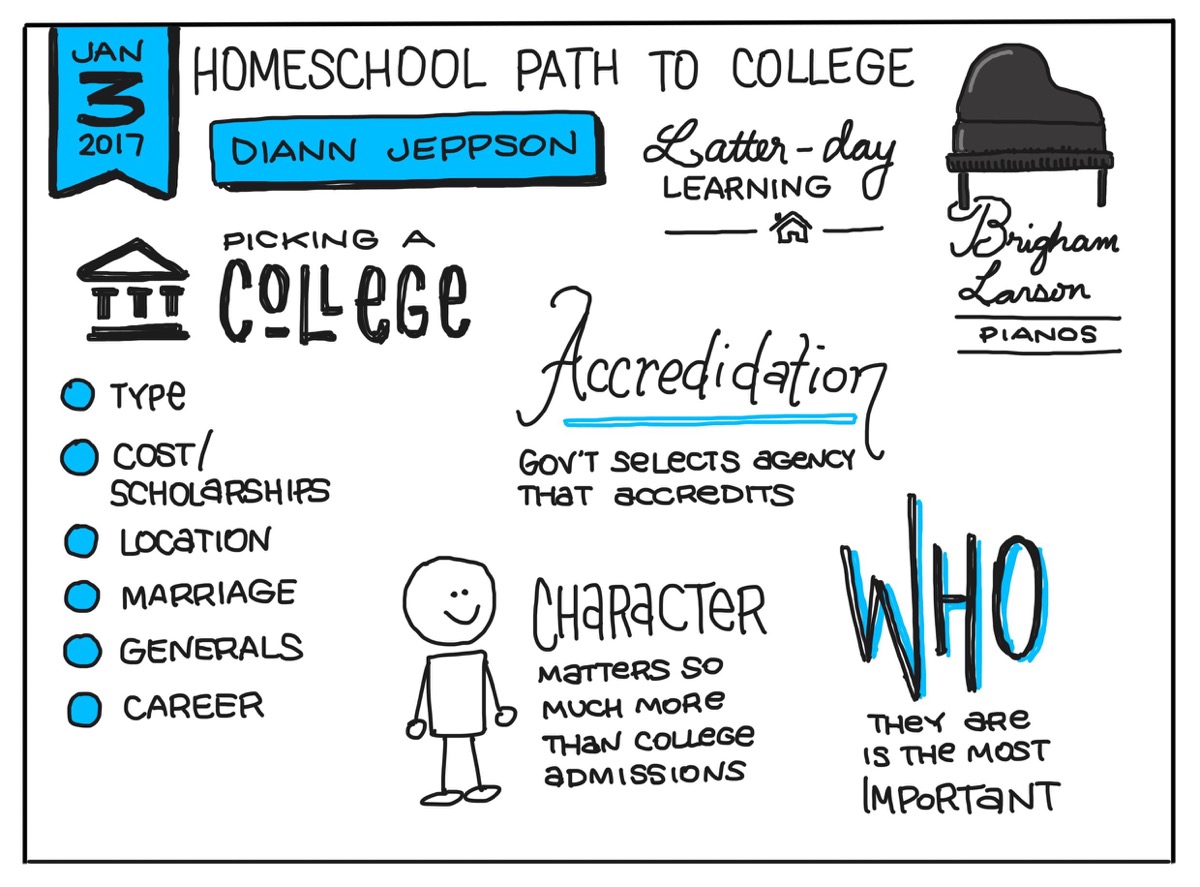 JAN
3
2017
HOMESCHOOL PATH TO COLLEGE
DIANN JEPPSON
Latter-day
LEARNING
Brigham
Larson
PIANOS
PICKING A
COLLEGE
TYPE
COST/
SCHOLARSHIPS
LOCATION
MARRIAGE
GENERALS
CAREER
Accredidation
GOV'T SELECTS AGENCY
THAT ACCREDITS
CHARACTER
MATTERS SO
MUCH MORE
THAN COLLEGE
ADMISSIONS
WHO
THEY ARE
IS THE MOST
IMPORTANT